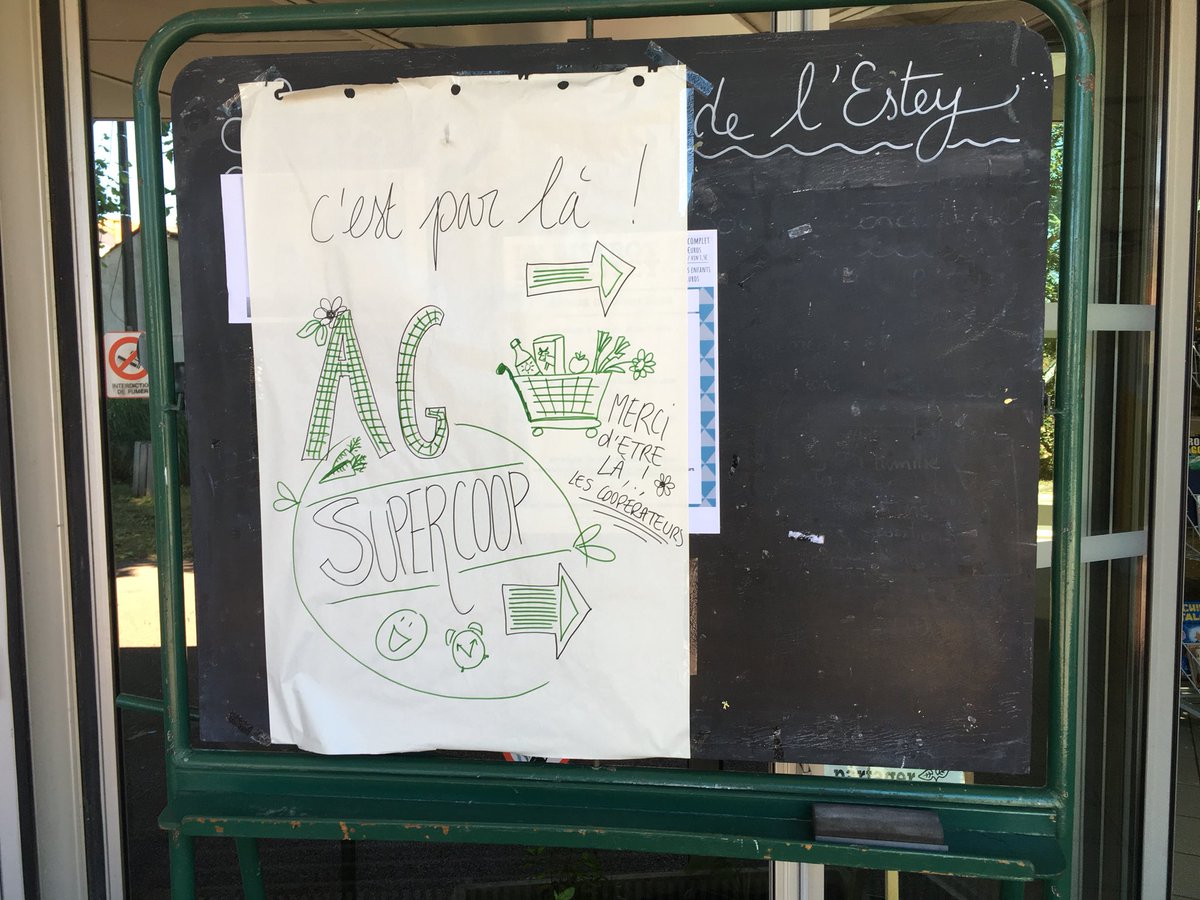 de l'Estey
c'est par là !
COMPLET
EUROS
ENFANTS
AG
MERCI
d'ETRE
LA !...
LES COOPÉRATEURS
SUPERCOOP
INTERDICTION
DE FUMER
partager